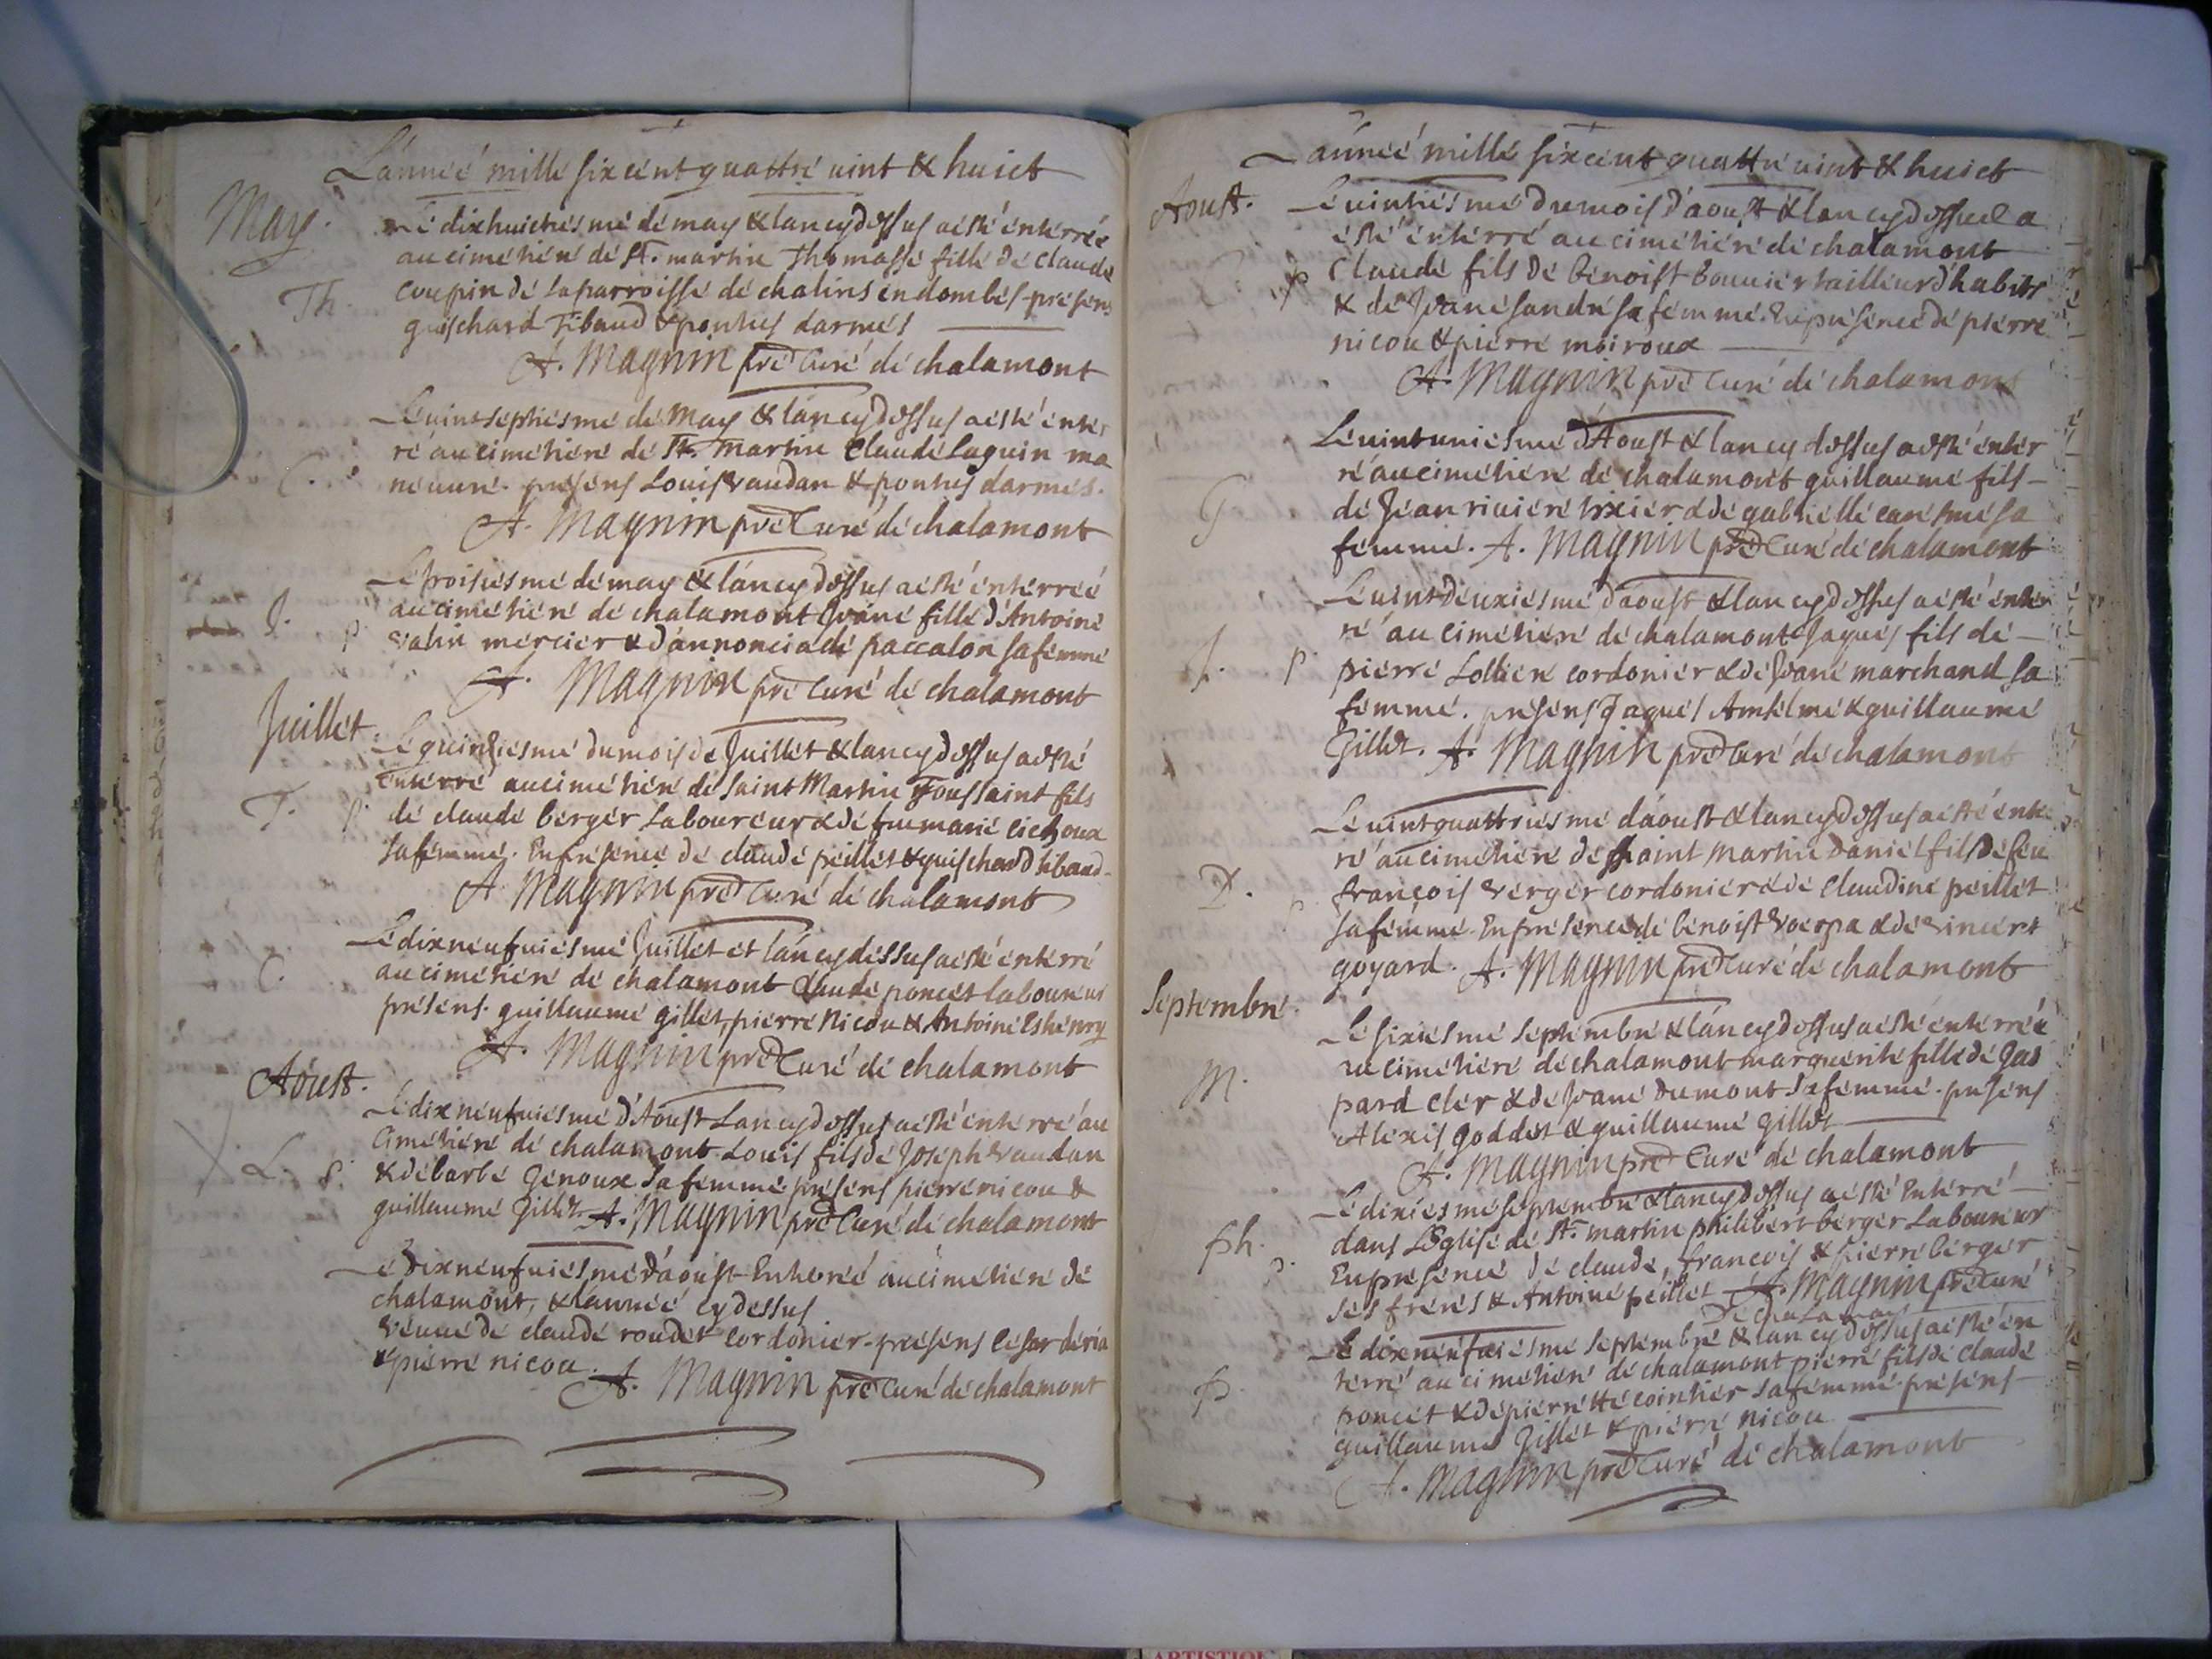 L'année mille six cent quattre vint & huict
May.
Le dixhuictiesme de may & lan cy dessus a esté enterrée
au cimetiere de St. martin Thomasse fille de Claude
Coupin de la parroisse de chalins en dombes presens
Th
guischard Tibaud & ponthus darmes
A. Magnin pre Curé de chalamont
Le vint septiesme de May & lan cy dessus a esté enter
ré au cimetiere de St. Martin Claude Laguin ma
C.
neuvre. presens Louis Vaudan & ponthus darmes.
A. Magnin pre Curé de chalamont
Le troisiesme de may & lan cy dessus a esté enterreé
au cimetiere de chalamont Jeane fille d'Antoine
J. p
Valin mercier & d'annonciade paccalon sa femme
A. Magnin pre Curé de chalamont
Juillet
Le quinziesme du mois de Juillet & lan cy dessus a esté
enterré au cimetiere de Saint Martin Toussaint fils
T. p
de claude berger Laboureur & de fue marie
sa femme. En presence de claude peillet & guischard tibaud
A. Magnin pre Curé de chalamont
Le dixneufviesme Juillet et lan cy dessus a esté enterré
C.
au cimetiere de chalamont Claude poncet laboureur
presens. guillaume gillet, pierre Nicou & Antoine
A. Magnin pre Curé de chalamont
Aoust.
Le dix neufviesme d'Aoust Lan cy dessus a esté enterré au
cimetiere de chalamont Louis fils de Joseph Vaudan
L. p.
& de barbe Genoux sa femme presens pierre nicou &
guillaume Gillet A. Magnin pre Curé de chalamont
Le Dixneufviesme d'aoust Enterreé au cimetiere de
chalamont, & l'année cy dessus
Veuve de claude roudet cordonier. presens
& pierre nicou. A. Magnin pre Curé de chalamont
L'année mille six cent quattre vint & huict
Aoust.
Le vintiesme du mois d'aoust & lan cy dessus a
esté enterré au cimetiere de chalamont
p
Claude fils de Benoist Bouvier tailleur d'habits
& de Jeane Sandre sa femme. En presence de pierre
nicou & pierre moiroux
A. Magnin pre Curé de chalamont
Le vint uniesme d'Aoust & lan cy dessus a esté enter
ré au cimetiere de chalamont guillaume fils
G
de Jean riviere tixier & de gabrielle caresme sa
femme. A. Magnin pre Curé de chalamont
Le vint deuxiesme d'aoust & lan cy dessus a esté enter
ré au cimetiere de chalamont Jaques fils de
J. p
pierre Lollier cordonier & de Jeane marchand sa
femme. presens Jaques Anselme & guillaume
Gillet. A. Magnin pre Curé de chalamont
Le vint quattriesme d'aoust & lan cy dessus a esté enter
ré au cimetiere de Saint Martin Daniel fils de feu
D. p
françois Verger cordonier & de Claudine peillet
sa femme. En presence de benoist & de vincent
goyard. A. Magnin pre Curé de chalamont
Septembre.
Le sixiesme septembre & lan cy dessus a esté enterrée
au cimetiere de chalamont marguerite fille de Gas
M.
pard Cler & de Jeane Dumont sa femme. presens
Alexis Goddet & guillaume Gillet
A. Magnin pre Curé de chalamont
Le dixiesme septembre & lan cy dessus a esté Enterré
dans L'Eglise de St. martin philibert berger Laboureur
ph. p.
En presence de claude, françois & pierre berger
ses freres & Antoine peillet A. Magnin pre Curé
De chalamont
Le dixneufviesme septembre & lan cy dessus a esté en
terré au cimetiere de chalamont pierre fils de Claude
p.
poncet & de pierrette cointier sa femme. presens
guillaume Gillet & pierre nicou
A. Magnin pre Curé de chalamont